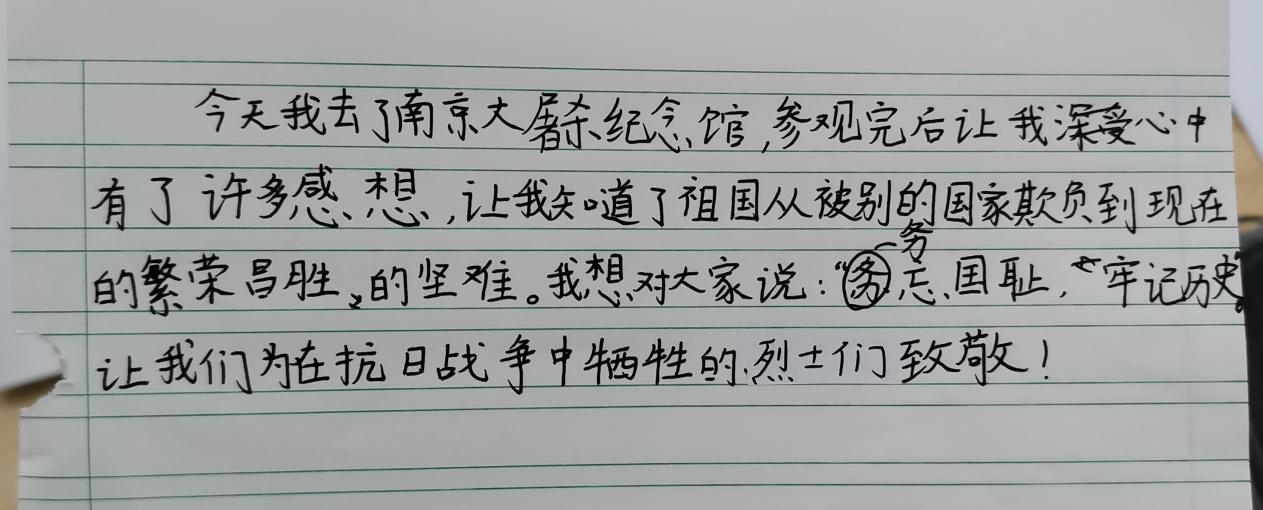 今天我去了南京大屠杀纪念馆,参观完后让我深受心中
有了许多感想,让我知道了祖国从被别的国家欺负到现在
务
的繁荣昌胜,的坚难。我想对大家说:“务忘国耻,牢记历史”。
让我们为在抗日战争中牺牲的烈士们致敬!